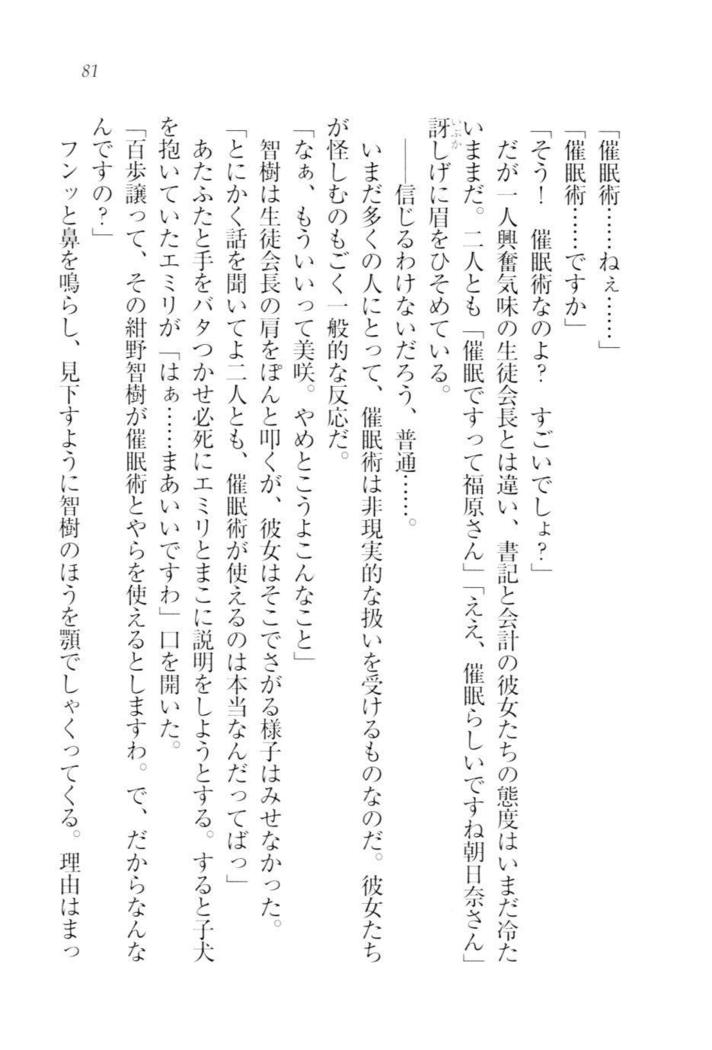 81
「催眠術……ねぇ……」
「催眠術……ですか」
「そう！　催眠術なのよ？　すごいでしょ？」
　だが一人興奮気味の生徒会長とは違い、書記と会計の彼女たちの態度はいまだ冷た
いままだ。二人とも「催眠ですって福原さん」「ええ、催眠らしいですね朝日奈さん」
訝しげに眉をひそめている。
いぶか
　――信じるわけないだろう、普通……。
　いまだ多くの人にとって、催眠術は非現実的な扱いを受けるものなのだ。彼女たち
が怪しむのもごく一般的な反応だ。
「なぁ、もういいって美咲。やめとこうよこんなこと」
　智樹は生徒会長の肩をぽんと叩くが、彼女はそこでさがる様子はみせなかった。
「とにかく話を聞いてよ二人とも、催眠術が使えるのは本当なんだってばっ」
　あたふたと手をバタつかせ必死にエミリとまこに説明をしようとする。すると子犬
を抱いていたエミリが「はぁ……まあいいですわ」口を開いた。
「百歩譲って、その紺野智樹が催眠術とやらを使えるとしますわ。で、だからなんな
んですの？」
　フンッと鼻を鳴らし、見下すように智樹のほうを顎でしゃくってくる。理由はまっ